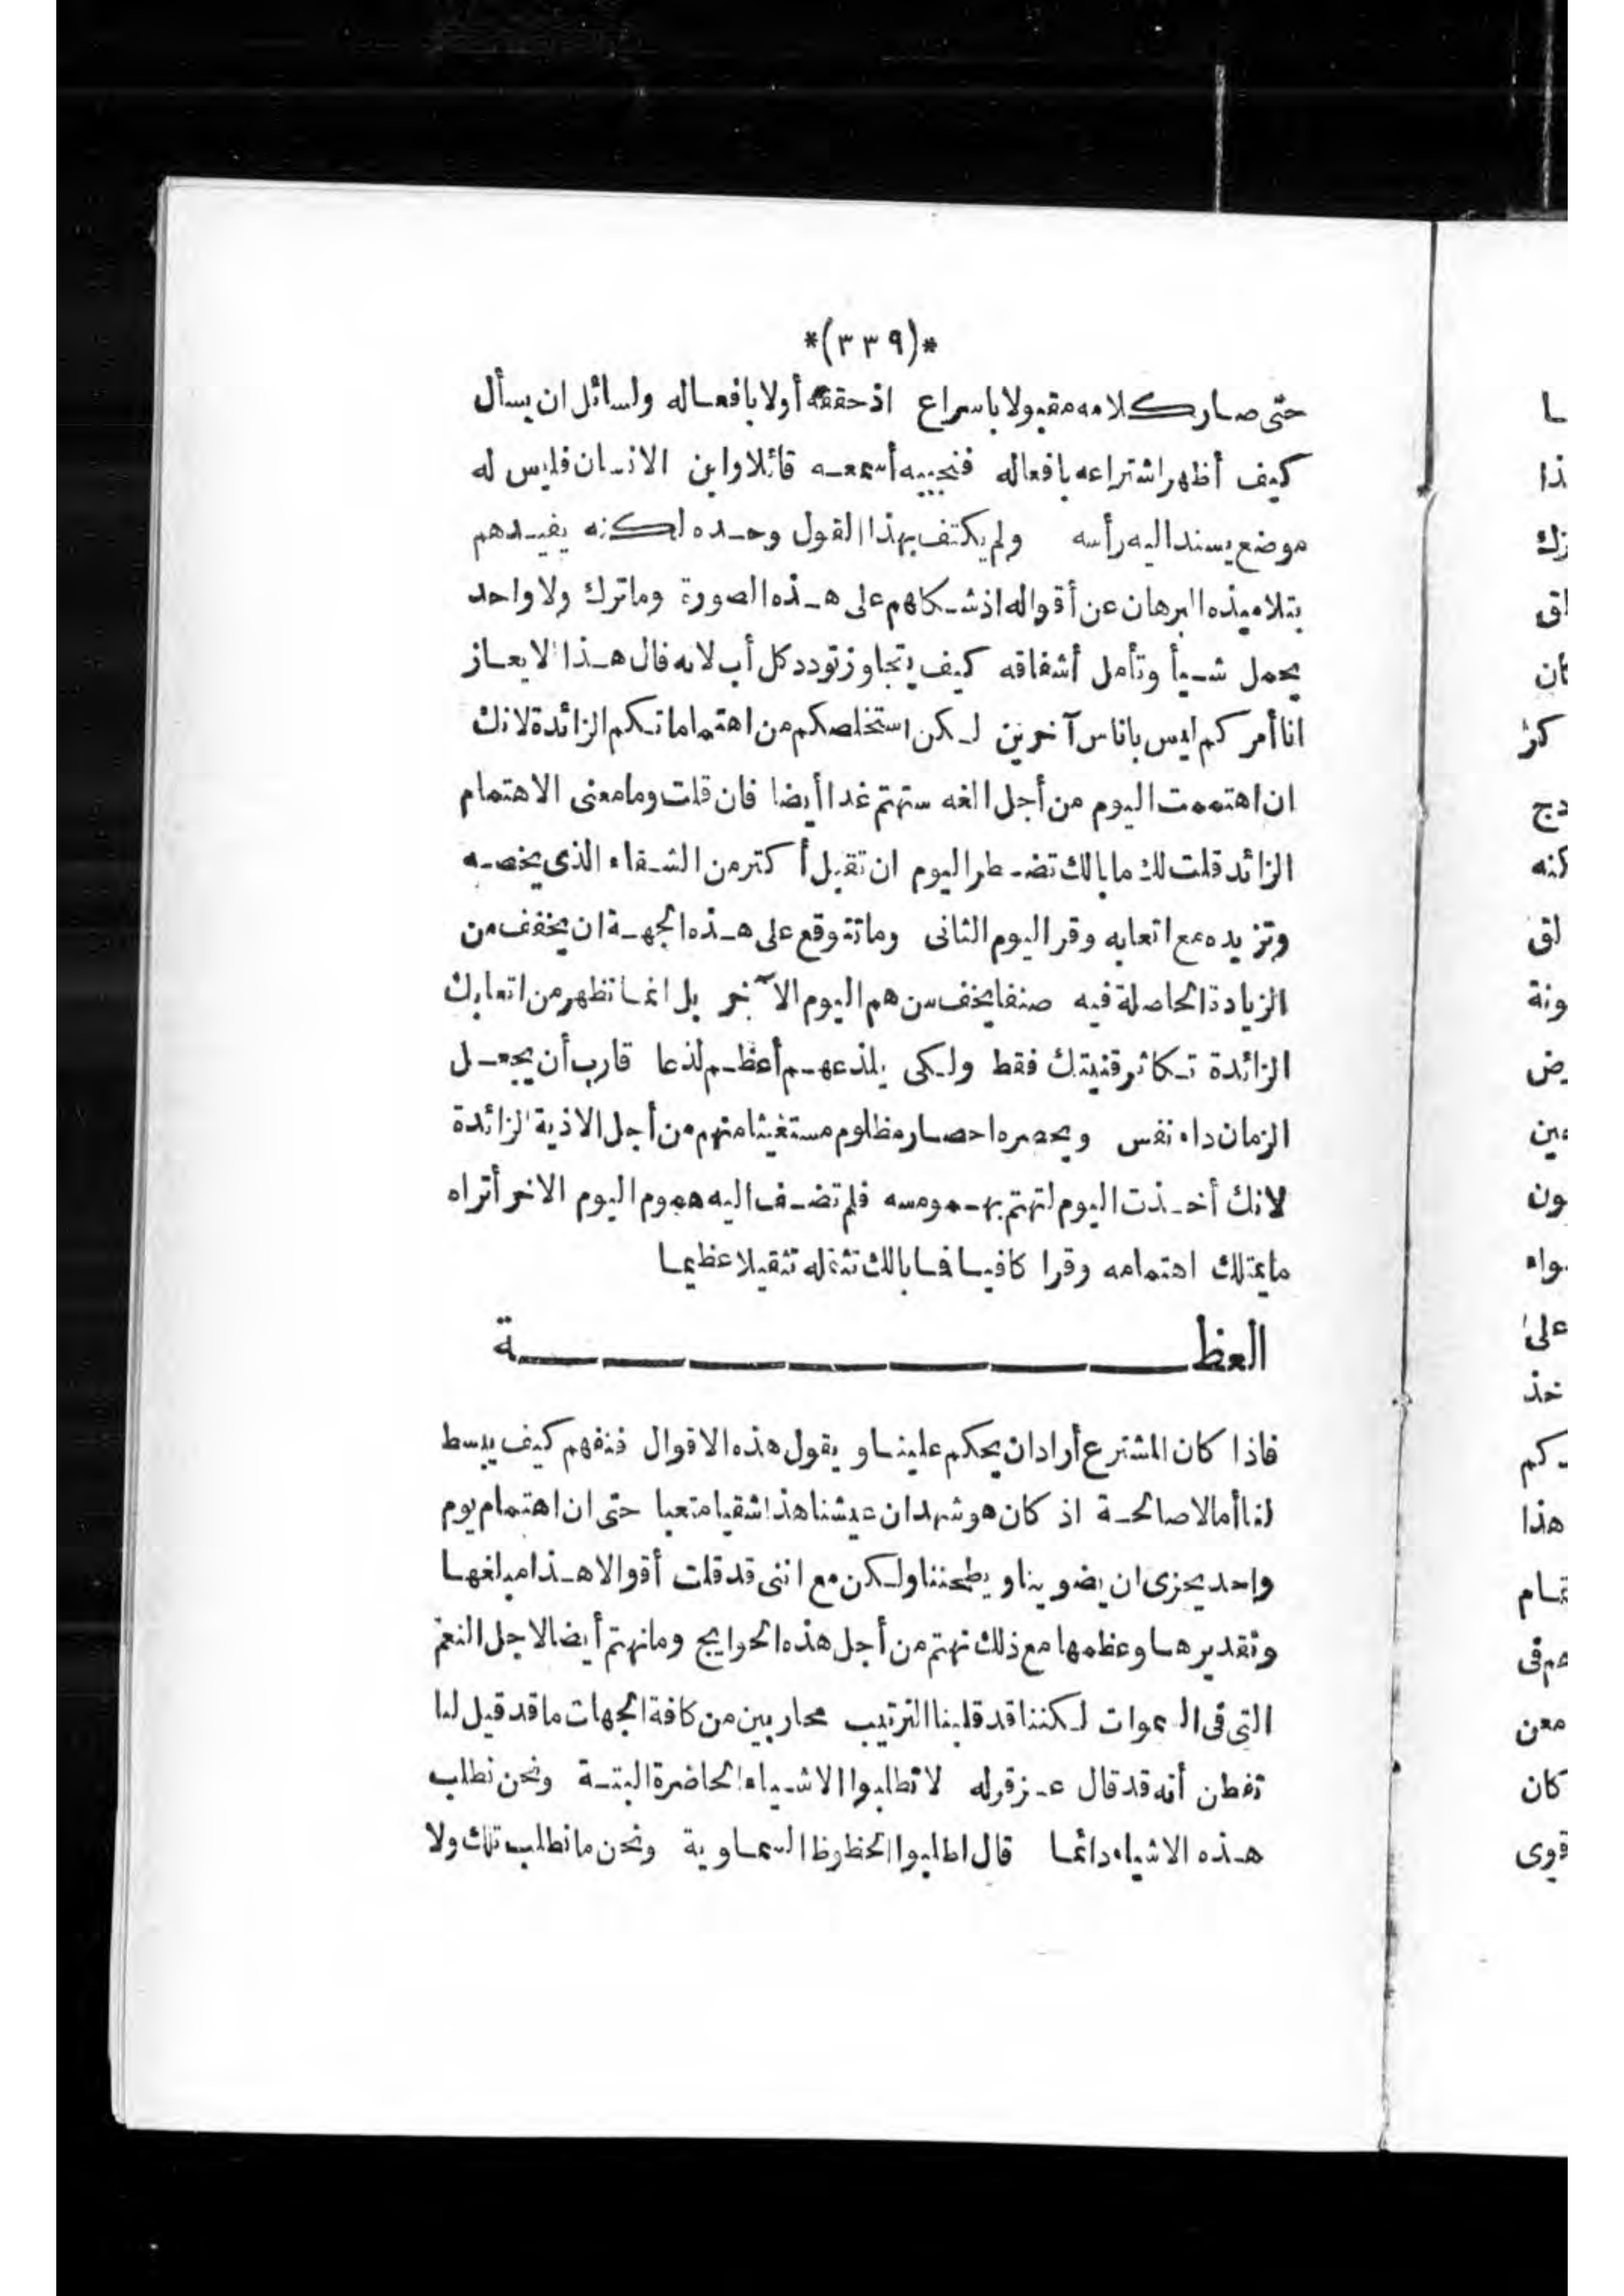 *(٣٣٩)*
حتى صار كلامه مقبولا باسراع اذ حققه أولا بافعاله ولسائل ان يسأل
كيف أظهر اشتراعه بافعاله فنجيبه أسمعه قائلا وابن الانسان فليس له
موضع يسند اليه رأسه ولم يكتف بهذا القول وحده لكنه يفيدهم
بتلاميذه البرهان عن أقواله اذ شكلهم على هذه الصورة وما ترك ولا واحد
يحمل شيأ وتأمل أشفاقه كيف يتجاوز تودد كل أب لانه قال هذا الايعاز
انا أمركم ليس باناس آخرين لكن استخلصكم من اهتماماتكم الزائدة لانك
ان اهتممت اليوم من أجل الغد ستهتم غدا أيضا فان قلت وما معنى الاهتمام
الزائد قلت لك ما بالك تضطر اليوم ان تقبل أكثر من الشقاء الذى يخصه
وتزيده مع اتعابه وقر اليوم الثانى وما تتوقع على هذه الجهة ان يخفف من
الزيادة الحاصلة فيه صنفا يخفف من هم اليوم الآخر بل انما تظهر من اتعابك
الزائدة تكاثر قنيتك فقط ولكى يلذعهم أعظم لذعا قارب أن يجعل
الزمان داء نفس ويحصره احصار مظلوم مستغيثا منهم من أجل الاذية الزائدة
لانك أخذت اليوم لتهتم بهمومه فلم تضف اليه هموم اليوم الاخر أتراه
ما يمتلك اهتمامه وقرا كافيا فما بالك تثقله تثقيلا عظيما
العظـــــــــــــة
فاذا كان المشترع أراد ان يحكم علينا و يقول هذه الاقوال فنفهم كيف يبسط
لنا أمالا صالحة اذ كان هو شهد ان عيشنا هذا شقيا متعبا حتى ان اهتمام يوم
واحد يجزى ان يضوينا و يطحننا ولكن مع اننى قد قلت أقوالا هذا مبلغها
وتقديرها وعظمها مع ذلك نهتم من أجل هذه الحوايج وما نهتم أيضا لاجل النعم
التى فى السموات لكننا قد قلبنا الترتيب محاربين من كافة الجهات ما قد قيل لنا
تفطن أنه قد قال عز قوله لا تطلبوا الاشياء الحاضرة البتة ونحن نطلب
هذه الاشياء دائما قال اطلبوا الحظوظ السماوية ونحن ما نطلب تلك ولا